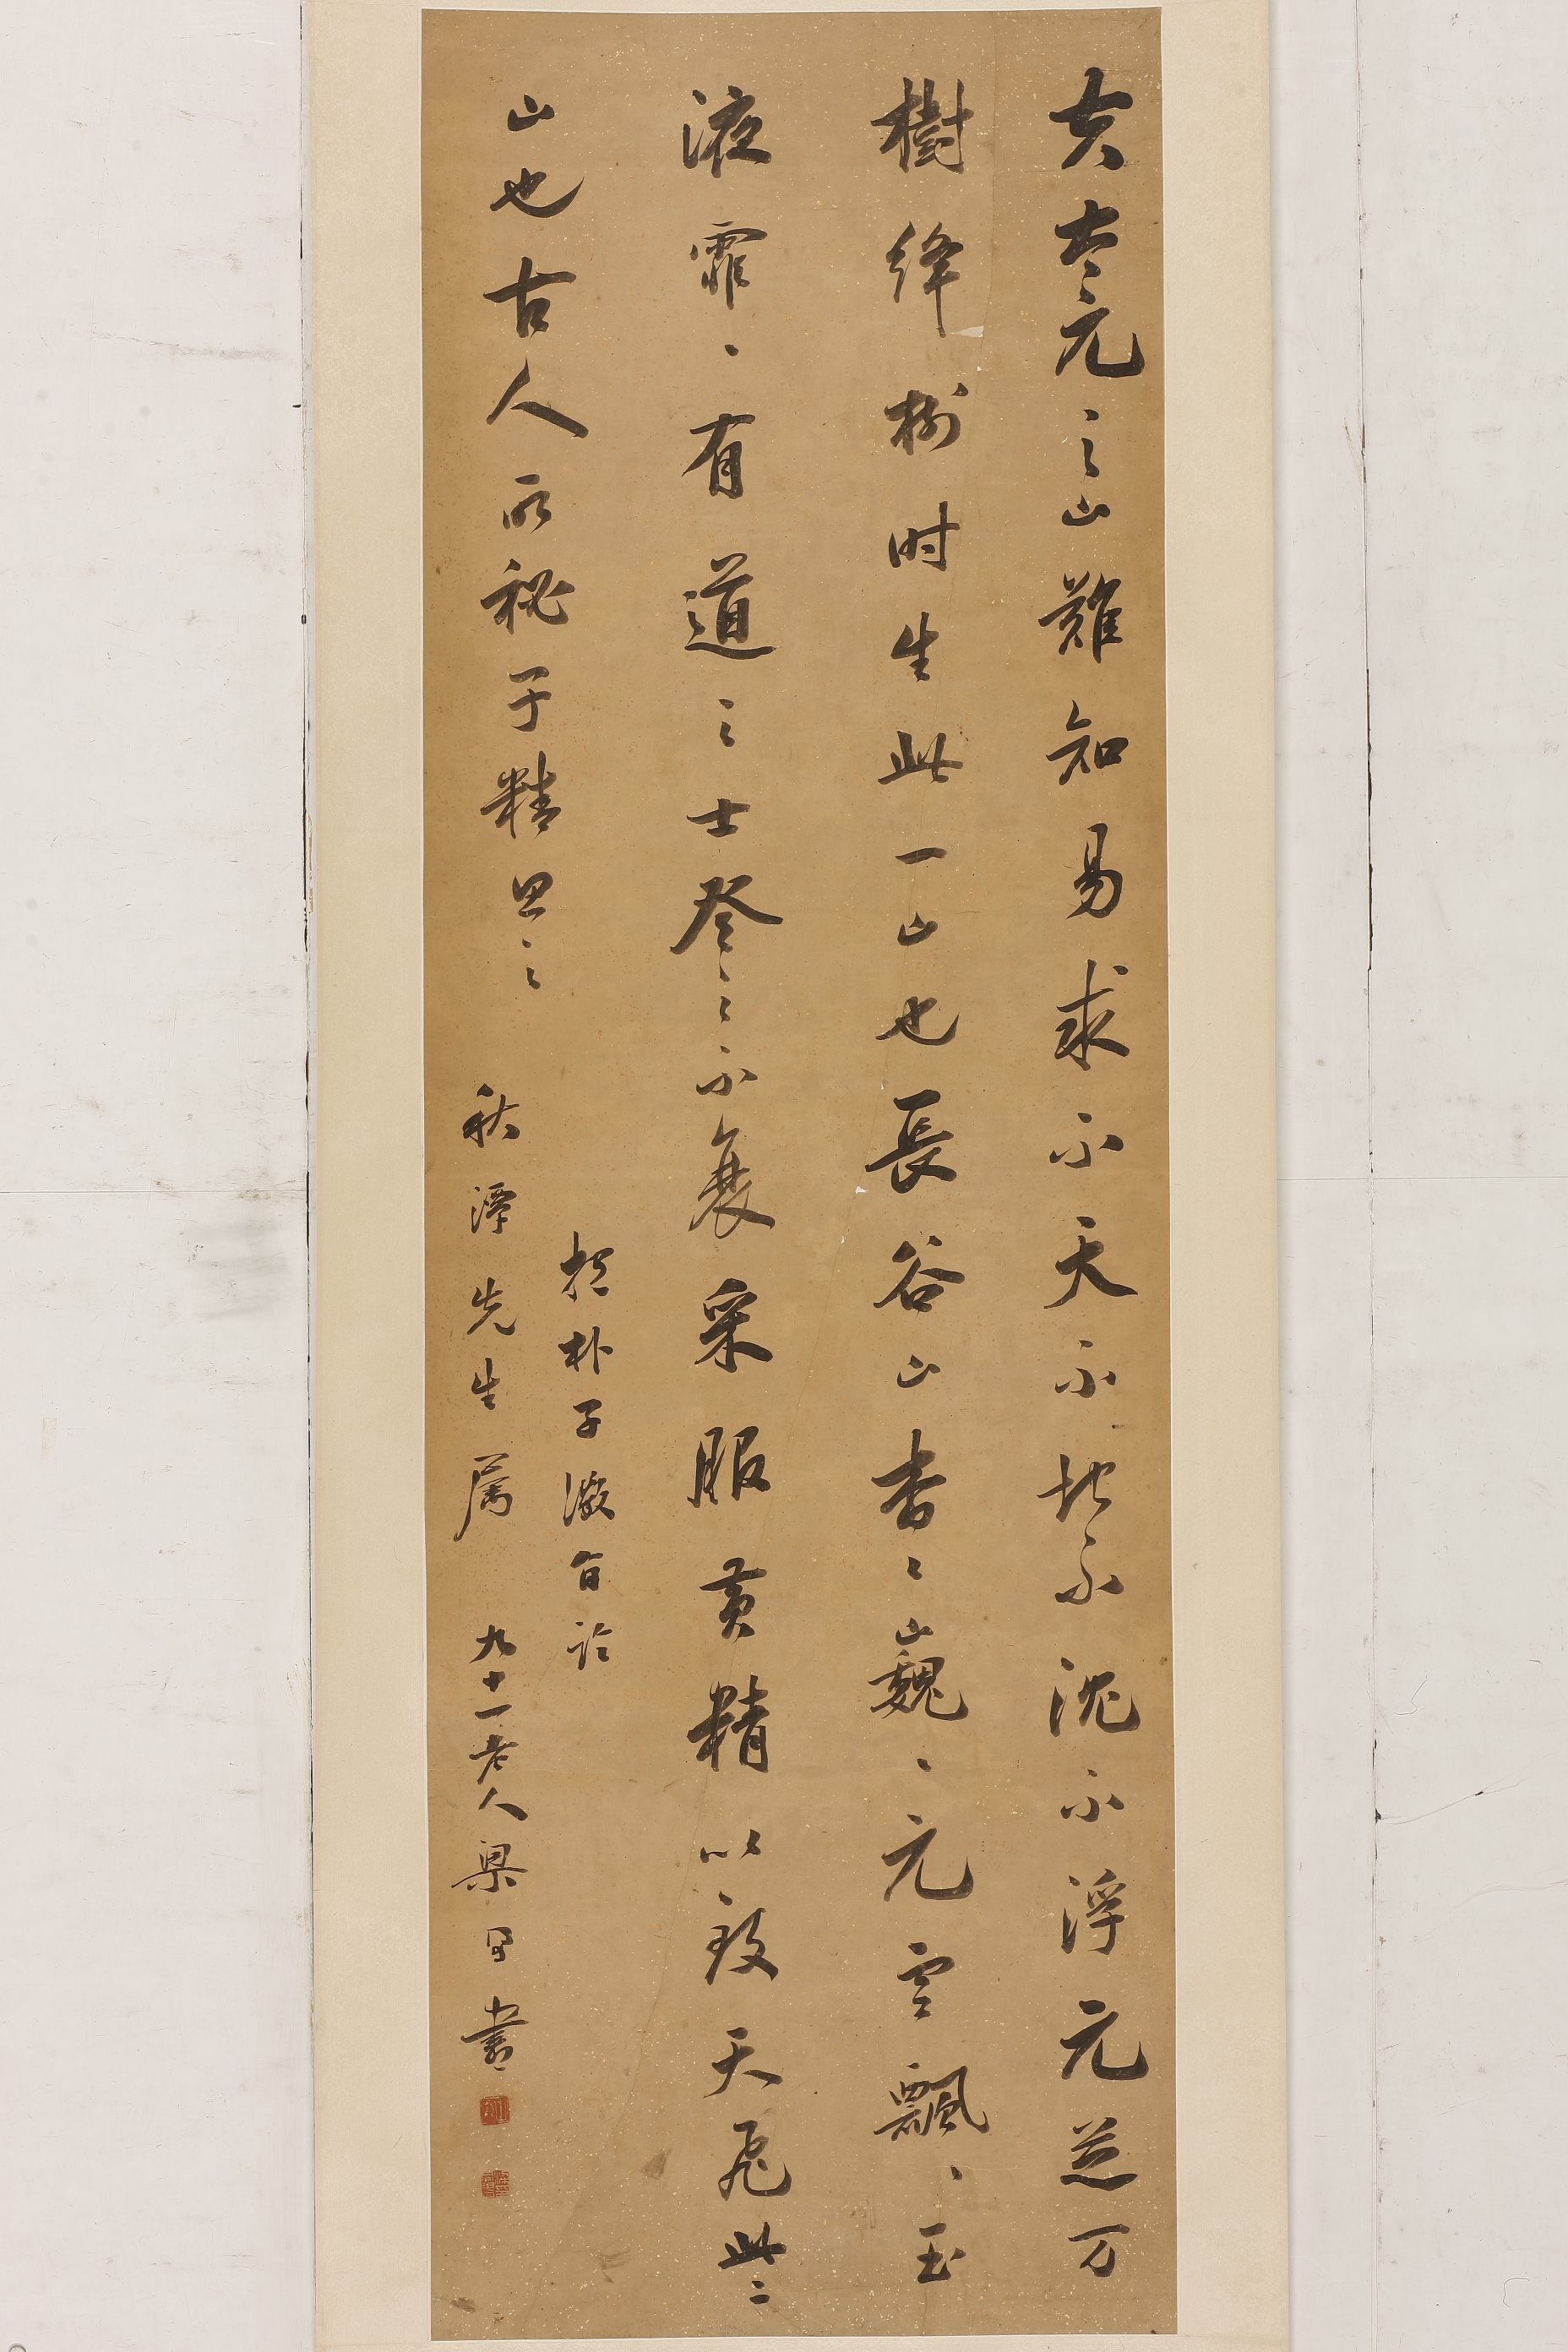 夫太元之山難知易求不天不地不沈不浮元芝万
樹絳树时生此一山也長谷山杳〻巍〻元雲飄〻玉
液霏〻有道之士登之不衰采服黄精以致天飛此二
山也古人所秘于精思之
抱朴子微旨論
秋潭先生属 九十一老人梁同書